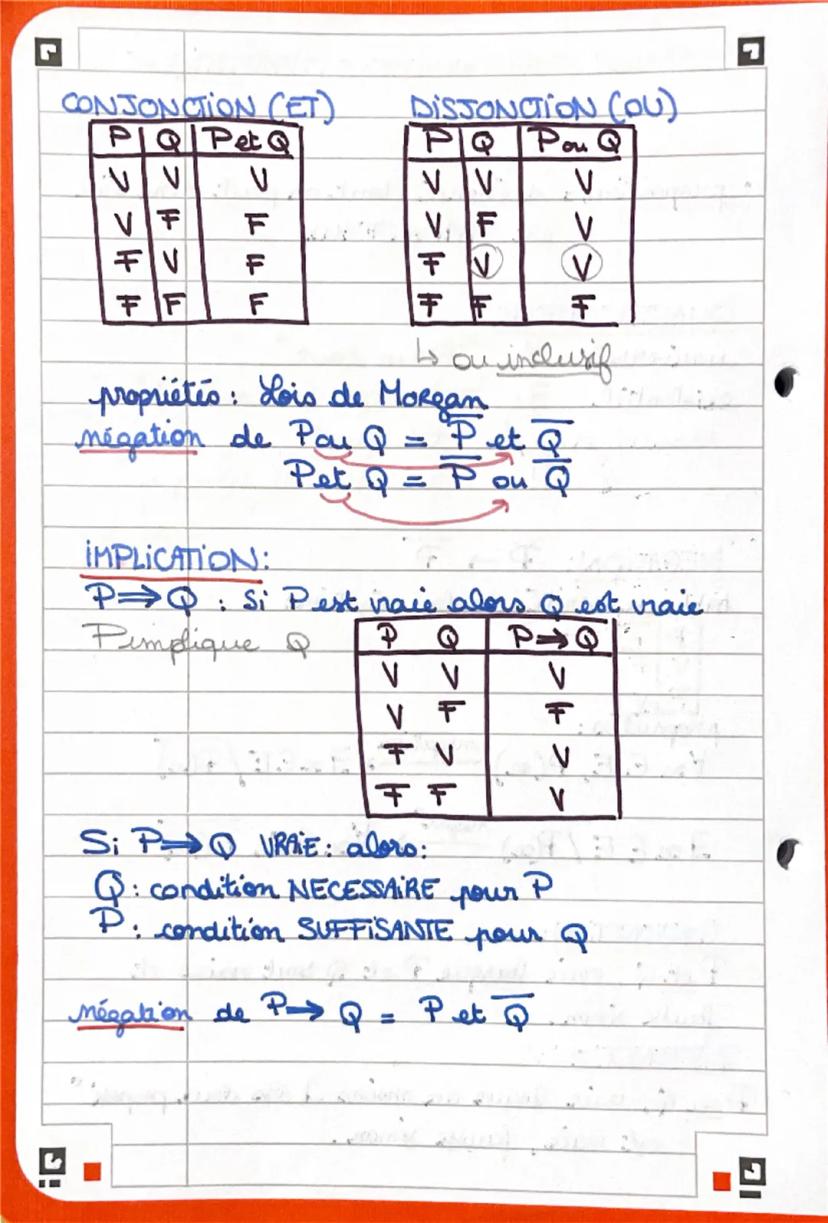 CONJONCTION (ET)
P Q P et Q
V V V
V F F
F V F
F F F
DISJONCTION (OU)
P Q P ou Q
V V V
V F V
F V V
F F F
↳ ou inclusif
propriétés : Lois de Morgan
négation de P ou Q = P̅ et Q̅
P et Q = P̅ ou Q̅
IMPLICATION :
P ⇒ Q : Si P est vraie alors Q est vraie
P implique Q
P Q P ⇒ Q
V V V
V F F
F V V
F F V
Si P ⇒ Q VRAIE : alors :
Q : condition NECESSAIRE pour P
P : condition SUFFISANTE pour Q
négation de P ⇒ Q = P et Q̅